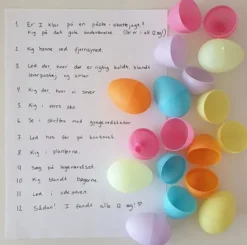 1. Er I klar på en påske-skattejagt?
Kig på det gule underlaken. (Der er i alt 12 æg!)
2. Kig henne ved fjernsynet.
3. Led der, hvor der er rigtig koldt, blandt
leverpostej og smør
4. Kig der, hvor vi sover
5. Kig i vores sko
6. Se i skuffen med gryderedskaber
7. Led nu her på kontoret.
8. Kig i planterne.
9. Søg på badeværelset.
10. Kig blandt bøgerne.
11. Led i sofaen.
12. Sådan! I fandt alle 12 æg!